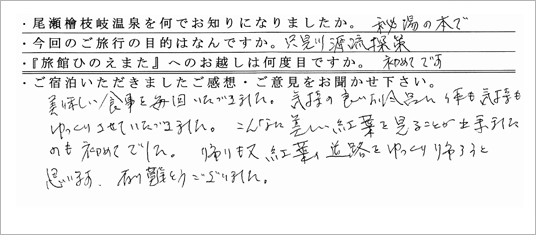 ・尾瀬檜枝岐温泉を何でお知りになりましたか。 秘湯の本で
・今回のご旅行の目的はなんですか。只見川源流探策
・『旅館ひのえまた』へのお越しは何度目ですか。 初めてです
・ご宿泊いただきましたご感想・ご意見をお聞かせ下さい。
美味しい食事を毎回いただきました。気持の良いお風呂に体も気持も
ゆっくりさせていただきました。こんなに美しい紅葉を見ることが出来ました
のも初めてでした。帰りも又紅葉の道路をゆっくり帰ろうと
思います。有難とうございました。